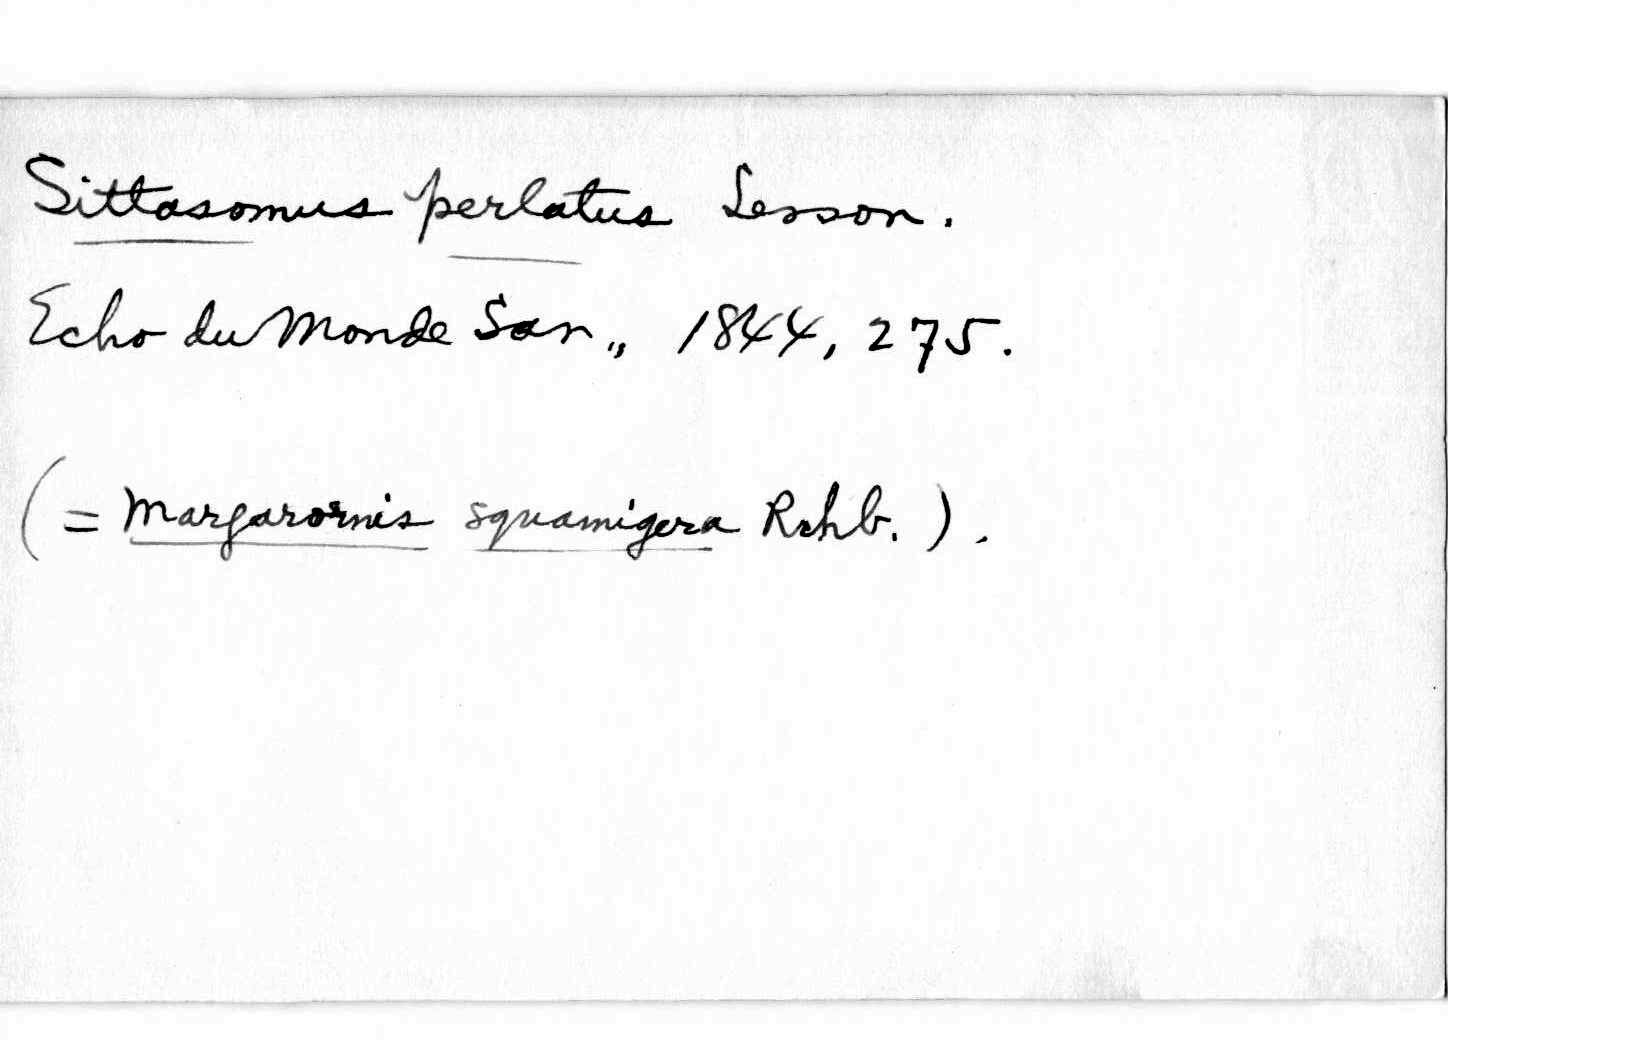 Sittasomus perlatus Lesson.
Echo du Monde San., 1844, 275.
(= Margarornis squamigera Rchb.).